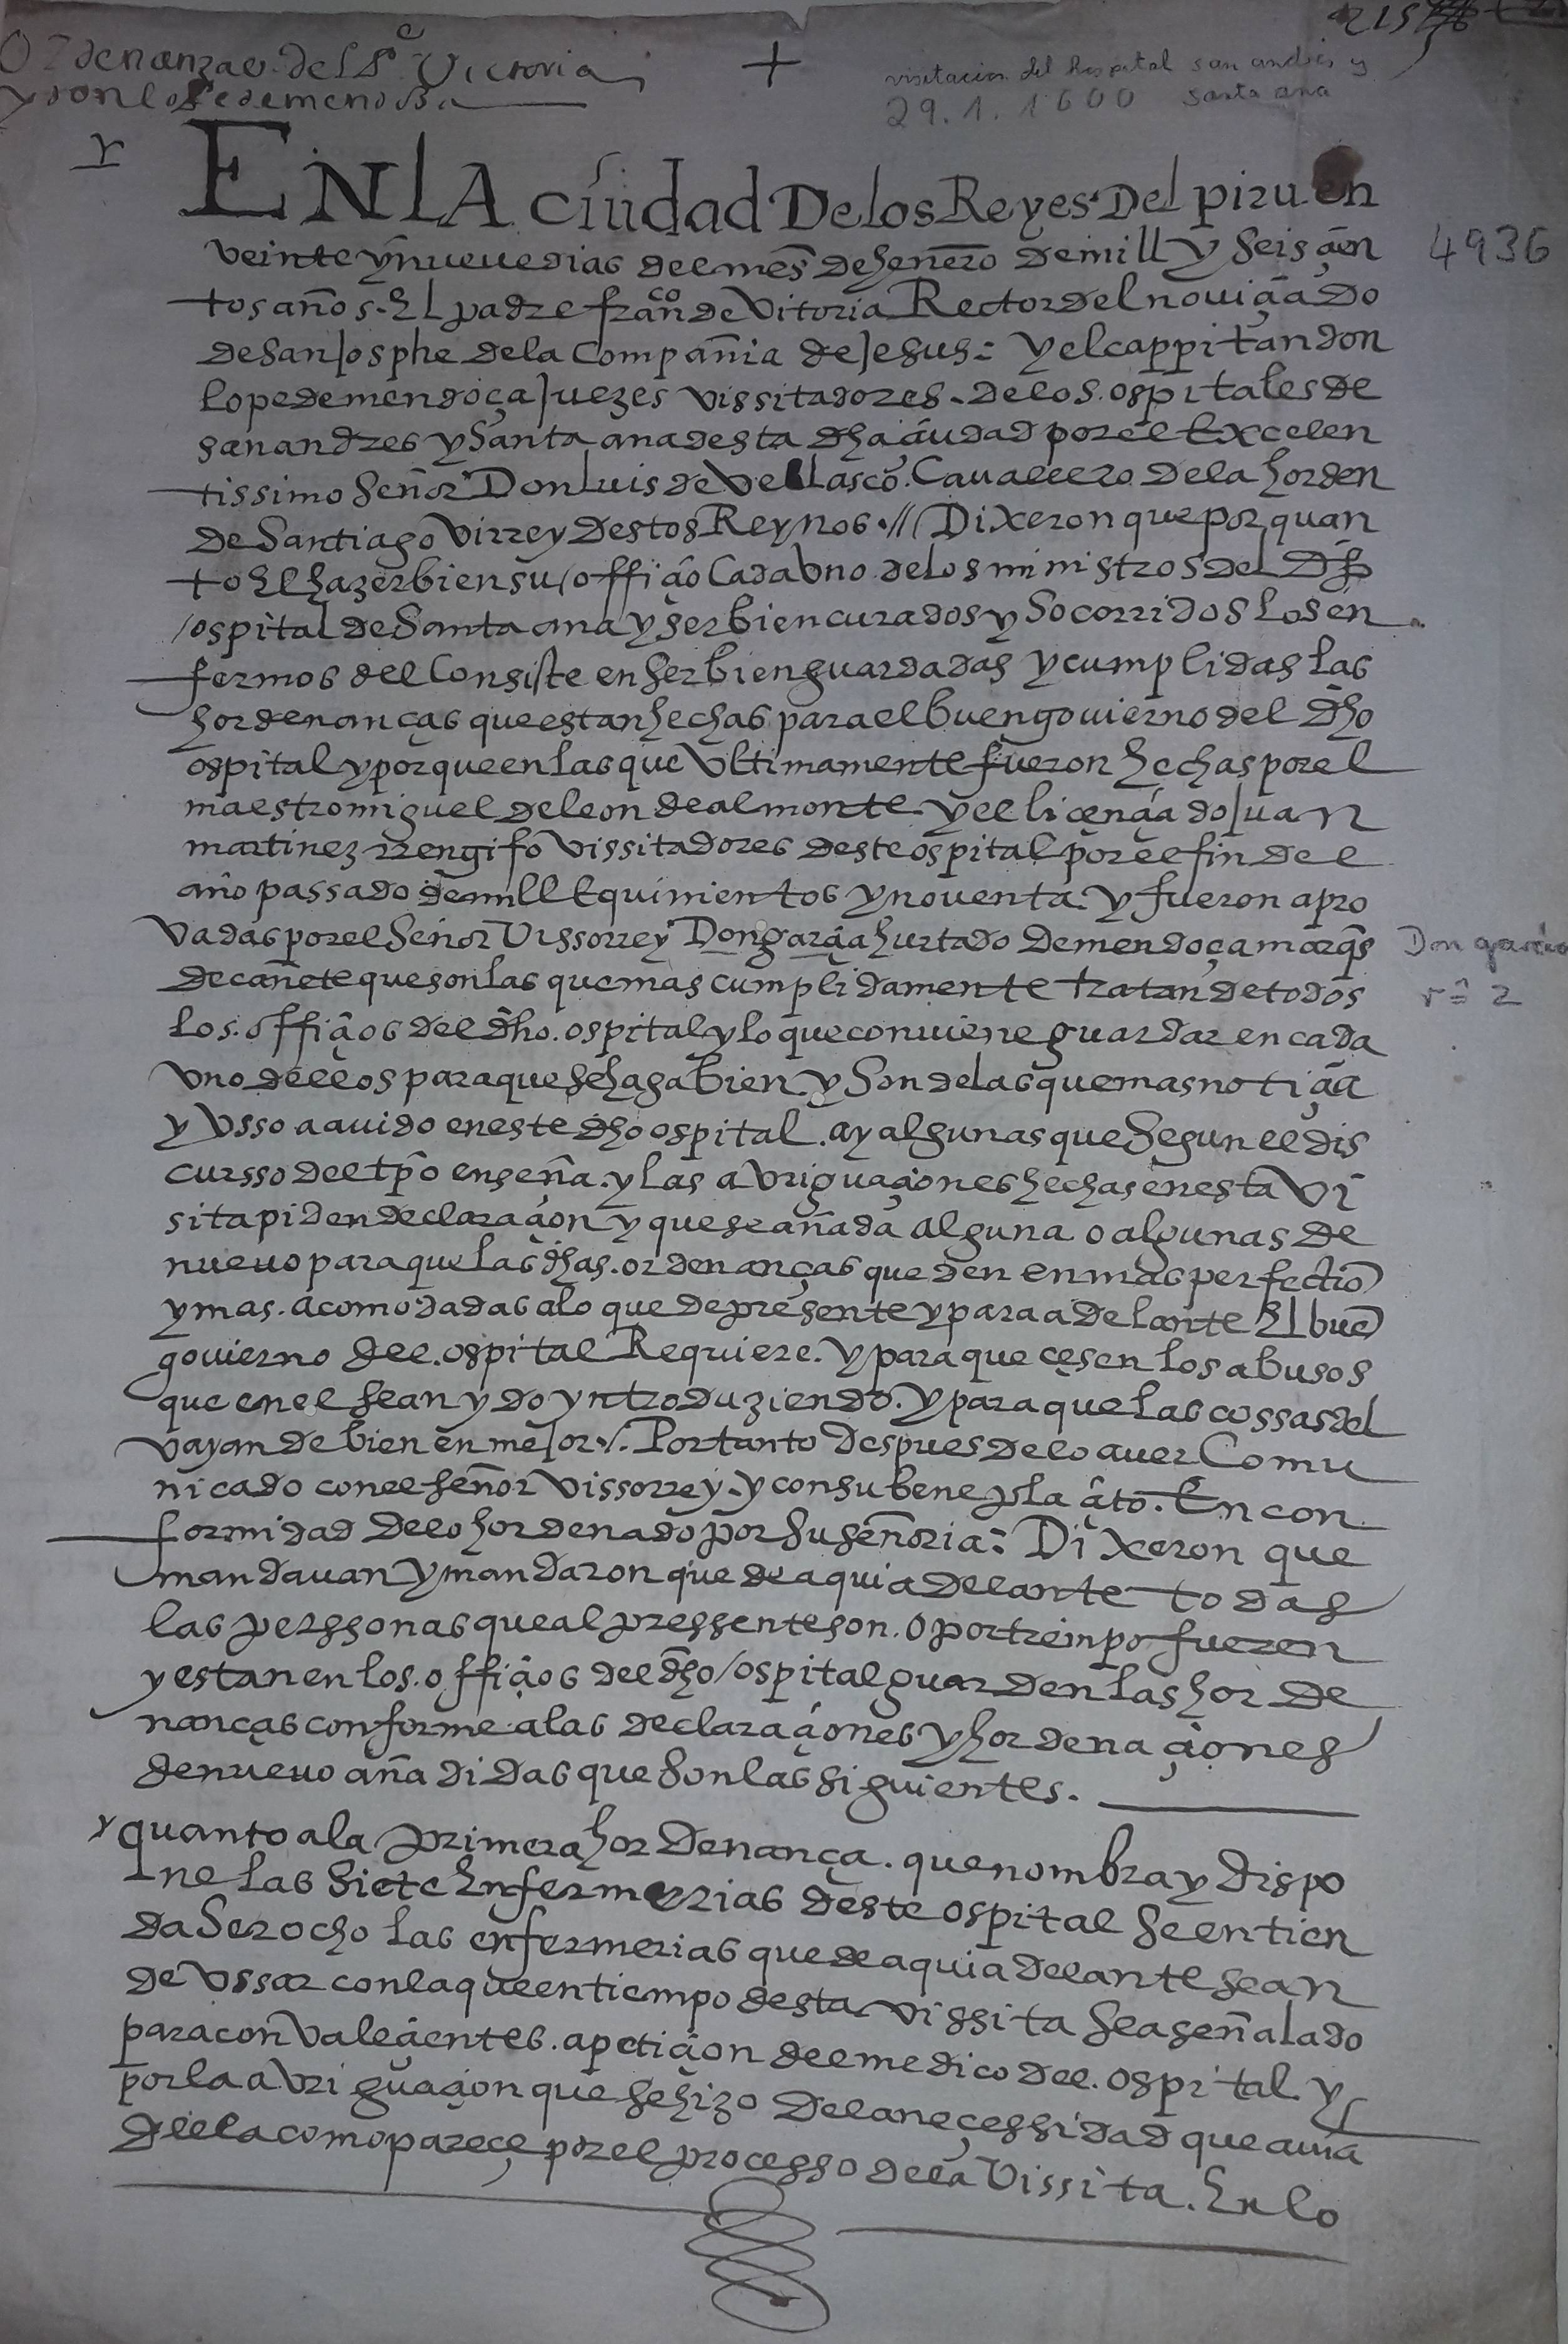 215
Ordenanzas del Pe Victoria
y don lope de mendoza
+
visitacion del hospital san andrés y
29.1.1600 santa ana
EN lA ciudad De los Reyes Del piru en
veinte y nueve dias del mes de henero de mill y seiscien
tos años. El padre franco de Vitoria Rector del noviciado
de san Josphe de la Compañia de Jesus: y el cappitan don
lope de mendoça Juezes vissitadores. de los. ospitales de
san andres y Santa ana desta dha ciudad por el Excelen
tissimo Señor Don Luis de Vellasco. Cavallero de la horden
de Santiago Virrey destos Reynos.// Dixeron que por quan
to El hazer bien su officio Cada Uno de los ministros del Dho
ospital de Santa ana y ser bien curados y Socorridos los en
fermos del Consiste en ser bien guardadas y cumplidas las
hordenanças que estan hechas para el buen govierno del dho
ospital y porque en las que Ultimamente fueron hechas por el
maestro miguel de leon de almonte y el licenciado Juan
martinez rrengifo Vissitadores deste ospital por el fin del
año passado de mill E quinientos y noventa. y fueron apro
Vadas por el Señor Vissorrey Don garcia hurtado de mendoça marqs
de cañete que son las que mas cumplidamente tratan de todos
los. officios del dho. ospital y lo que conviene guardar en cada
Uno dellos para que se haga bien. y Son de las que mas noticia
y Usso a avido en este dho ospital. ay algunas que Segun el dis
cursso del tpo enseña. y las averiguaciones hechas en esta Vi
sita piden declaracion y que se añada alguna o algunas de
nuevo para que las dhas. ordenanças queden en mas perfectio
y mas. acomodadas a lo que de presente y para adelante El bue
govierno del. ospital Requiere. y para que cesen los abusos
que en el sean ydo yntroduziendo. y para que las cossas del
vayan de bien en mejor./. Por tanto despues de lo aver Comu
nicado con el señor Vissorrey. y con su beneplacito. En con
formidad de lo hordenado por Su señoria: Dixeron que
mandavan y mandaron que de aqui adelante todas
las perssonas que al pressente son. o por tiempo fueren
y estan en los. officios del dho ospital guarden las horde
nanças conforme a las declaraciones y hordenaciones
de nuevo añadidas que Son las siguientes.
y quanto a la primera hordenança. que nombra y dispo
ne las Siete Enfermerias deste ospital Se entien
da Ser ocho las enfermerias que de aqui adelante sean
de Ussar con la que en tiempo desta vissita Sea señalado
para convalecientes. a peticion del medico del. ospital. y
por la averiguacion que se hizo de la necessidad que avia
della como parece por el processo de la Vissita. En lo
4936
Don garcia
r= 2